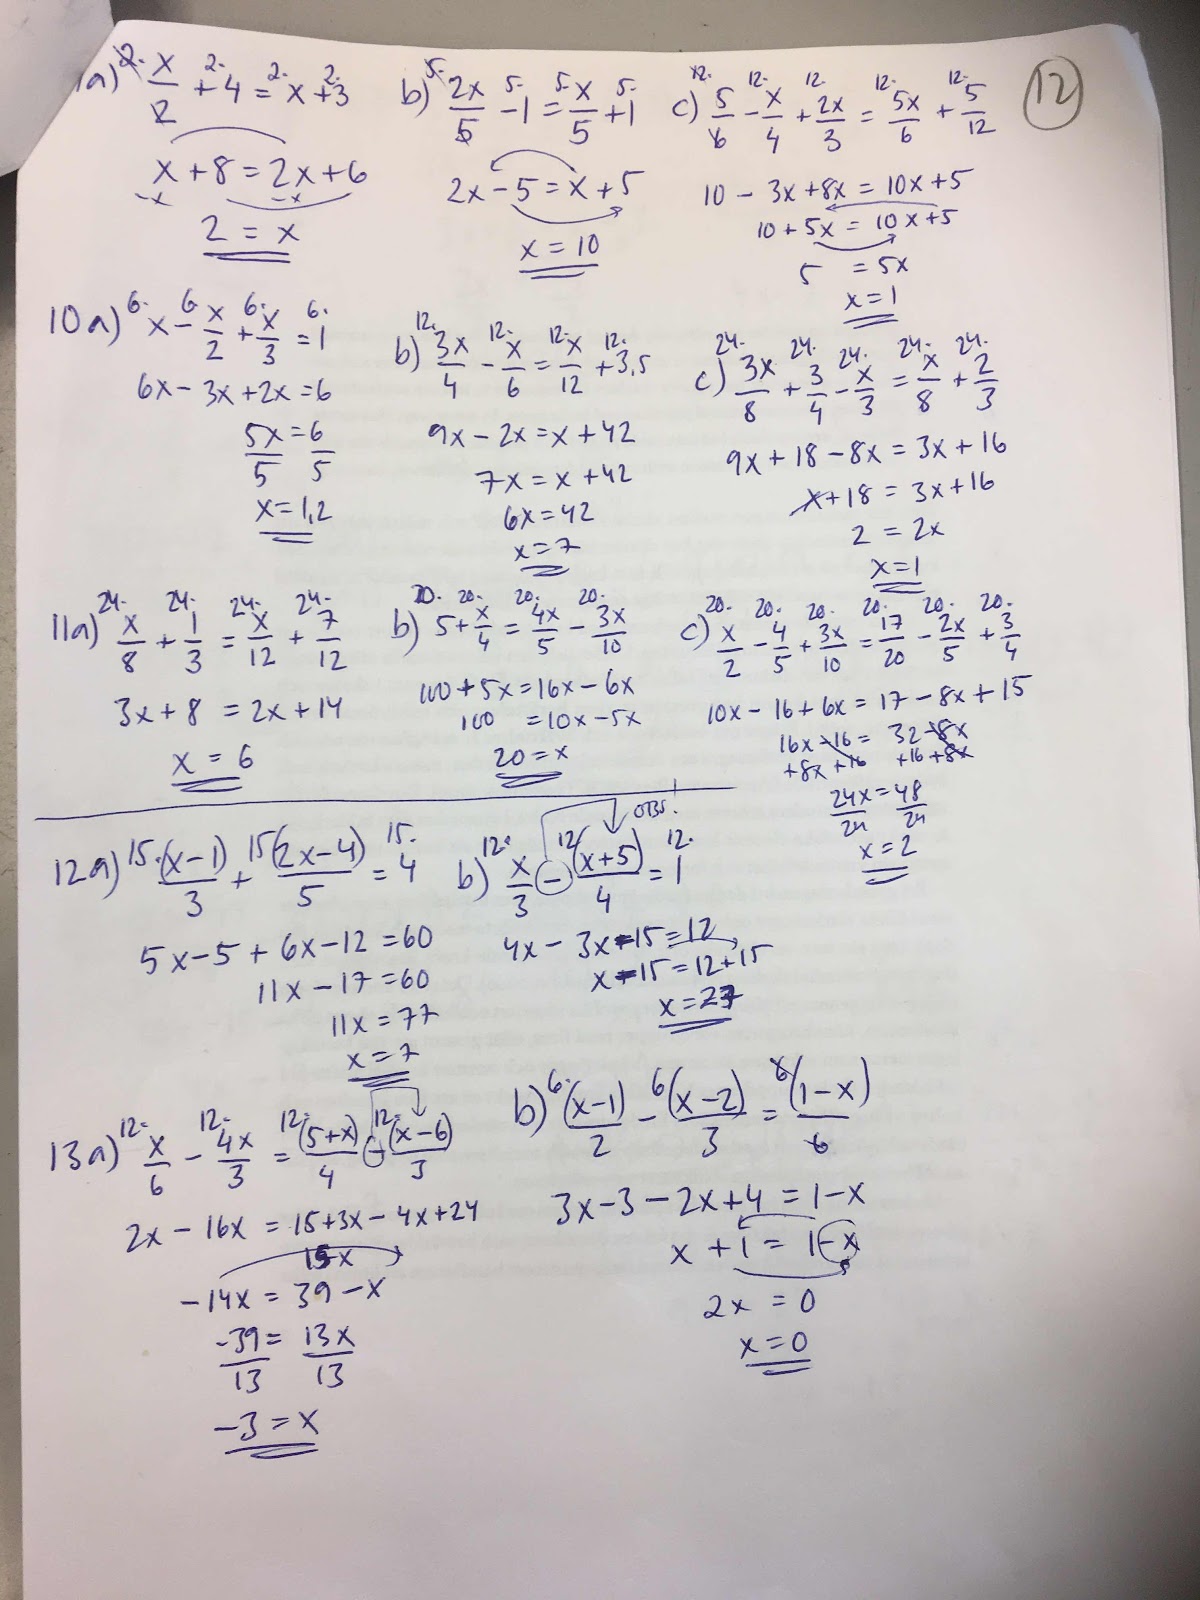 a) 2· x/2 + 2· 4 = 2· x + 2· 3
x + 8 = 2x + 6
-x -x
2 = x
b) 5· 2x/5 - 5· 1 = 5· x/5 + 5· 1
2x - 5 = x + 5
x = 10
c) 12· 5/6 - 12· x/4 + 12· 2x/3 = 12· 5x/6 + 12· 5/12
10 - 3x + 8x = 10x + 5
10 + 5x = 10x + 5
5 = 5x
x = 1
12
10a) 6· x - 6· x/2 + 6· x/3 = 6· 1
6x - 3x + 2x = 6
5x/5 = 6/5
x = 1,2
b) 12· 3x/4 - 12· x/6 = 12· x/12 + 12· 3,5
9x - 2x = x + 42
7x = x + 42
6x = 42
x = 7
c) 24· 3x/8 + 24· 3/4 - 24· x/3 = 24· x/8 + 24· 2/3
9x + 18 - 8x = 3x + 16
x + 18 = 3x + 16
2 = 2x
x = 1
11a) 24· x/8 + 24· 1/3 = 24· x/12 + 24· 7/12
3x + 8 = 2x + 14
x = 6
b) 20· 5 + 20· x/4 = 20· 4x/5 - 20· 3x/10
100 + 5x = 16x - 6x
100 = 10x - 5x
20 = x
c) 20· x/2 - 20· 4/5 + 20· 3x/10 = 20· 17/20 - 20· 2x/5 + 20· 3/4
10x - 16 + 6x = 17 - 8x + 15
16x - 16 = 32 - 8x
+8x +16 +16 +8x
24x/24 = 48/24
x = 2
12a) 15· (x-1)/3 + 15 (2x-4)/5 = 15· 4
5x - 5 + 6x - 12 = 60
11x - 17 = 60
11x = 77
x = 7
OBS.
b) 12· x/3 - 12 (x+5)/4 = 12· 1
4x - 3x - 15 = 12
x - 15 = 12 + 15
x = 27
13a) 12· x/6 - 12· 4x/3 = 12· (5+x)/4 - 12· (x-6)/3
2x - 16x = 15 + 3x - 4x + 24
-14x = 39 - x
-39/13 = 13x/13
-3 = x
b) 6· (x-1)/2 - 6 (x-2)/3 = 6 (1-x)/6
3x - 3 - 2x + 4 = 1 - x
x + 1 = 1 - x
2x = 0
x = 0